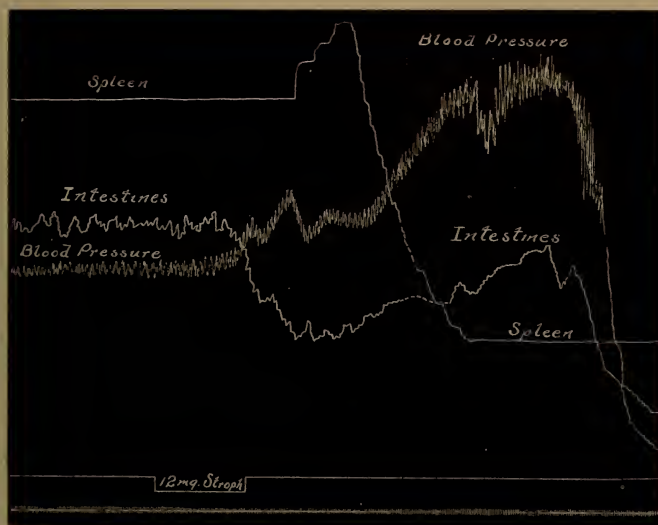 Blood Pressure
Spleen
Intestines
Blood Pressure
Intestines
Spleen
12mg. Stroph